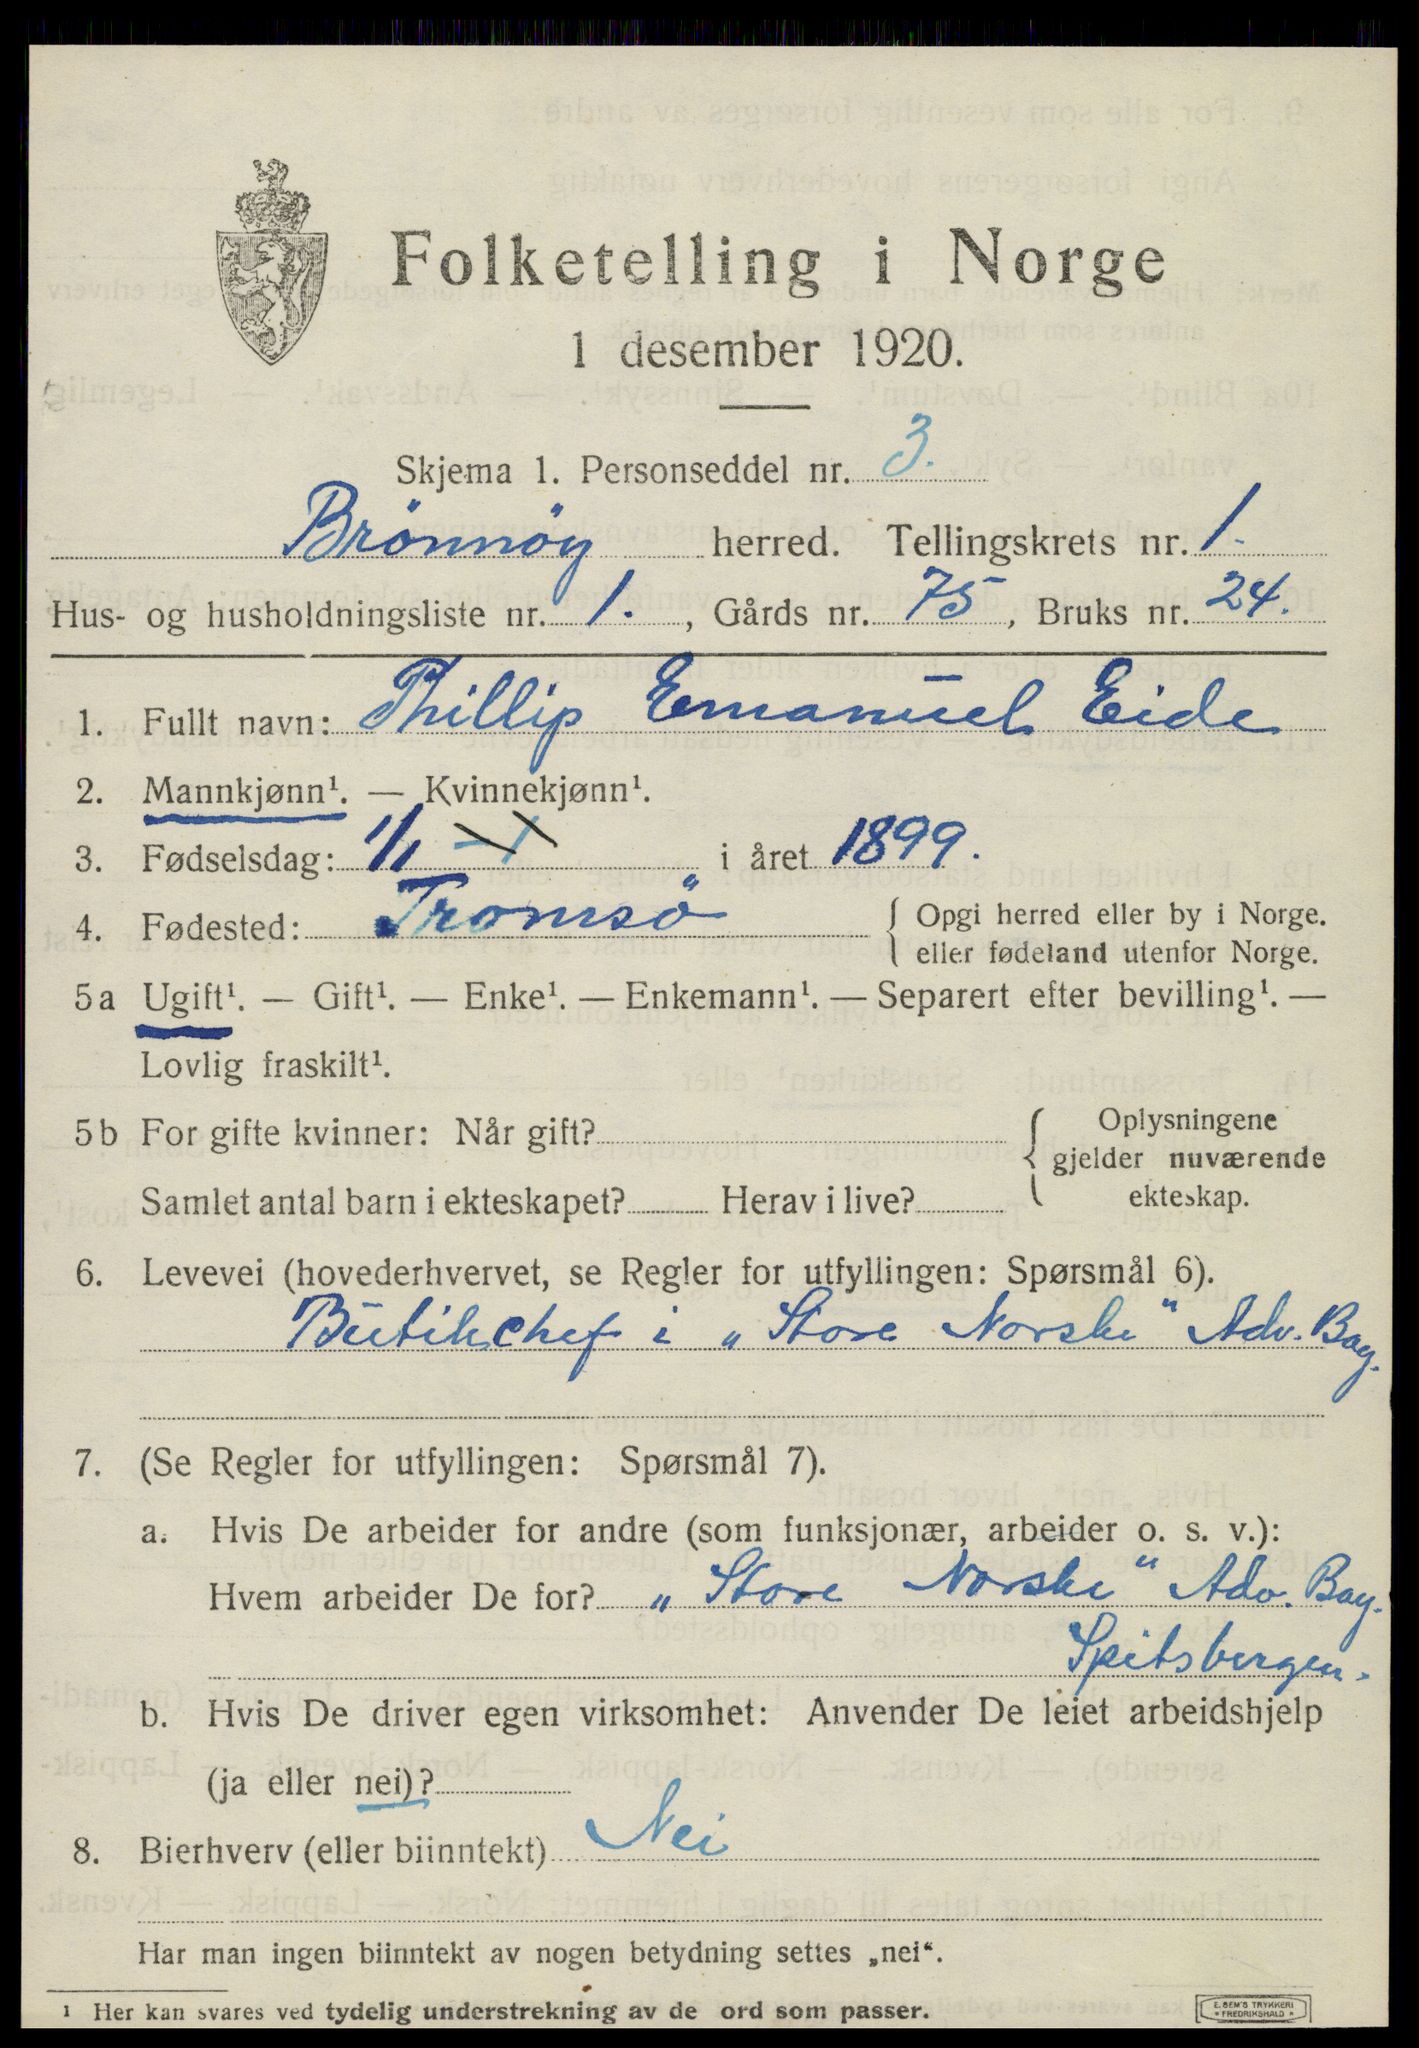 Folketelling i Norge
1 desember 1920.
Skjema 1. Personseddel nr. 3.
Brönnöy herred. Tellingskrets nr. 1.
Hus- og husholdningsliste nr. 1., Gårds nr. 75, Bruks nr. 24.
1. Fullt navn: Phillip Emanuel Eide
2. Mannkjønn¹. — Kvinnekjønn¹.
3. Fødselsdag: 1/1 i året 1899.
4. Fødested: Tromsö { Opgi herred eller by i Norge.
eller fødeland utenfor Norge.
5a Ugift¹. — Gift¹. — Enke¹. — Enkemann¹. — Separert efter bevilling¹. —
Lovlig fraskilt¹.
5b For gifte kvinner: Når gift? { Oplysningene
gjelder nuværende
Samlet antal barn i ekteskapet? Herav i live? ekteskap.
6. Levevei (hovederhvervet, se Regler for utfyllingen: Spørsmål 6).
Butikchef i „Store Norske" Adv. Bay.
7. (Se Regler for utfyllingen: Spørsmål 7).
a. Hvis De arbeider for andre (som funksjonær, arbeider o. s. v.):
Hvem arbeider De for? „Store Norske" Adv. Bay.
Spitsbergen.
b. Hvis De driver egen virksomhet: Anvender De leiet arbeidshjelp
(ja eller nei)?
8. Bierhverv (eller biinntekt) Nei
Har man ingen biinntekt av nogen betydning settes „nei“.
¹ Her kan svares ved tydelig understrekning av de ord som passer.
E. SEM'S TRYKKERI
* FREDRIKSHALD *